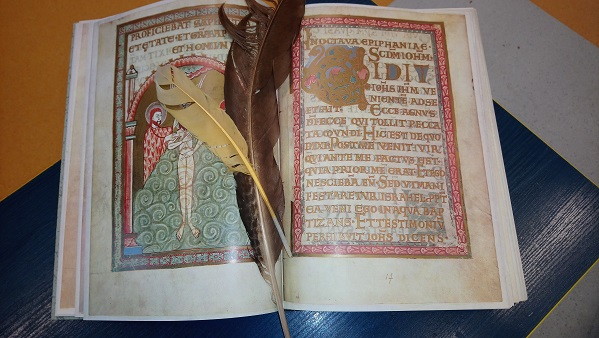 PROFICIEBAT
ETATE ET
ET HOMIN
IN OCTAVA EPIPHANIAE
SCDM IOHM
VIDIT
IOHS IHM VE
NIENTE AD SE
ET AIT ECCE AGNVS
DI ECCE QVI TOLLIT PECCA
TA MVNDI HIC EST DE QVO
DIXI POST ME VENIT VIR
QVI ANTE ME FACTVS EST
QVIA PRIOR ME ERAT ET EGO
NESCIEBA EVM SED VT MANI
FESTARETVR ISRAHEL PPT
EA VENI EGO IN AQVA BAP
TIZANS ET TESTIMONIV
PERHIBVIT IOHS DICENS
17